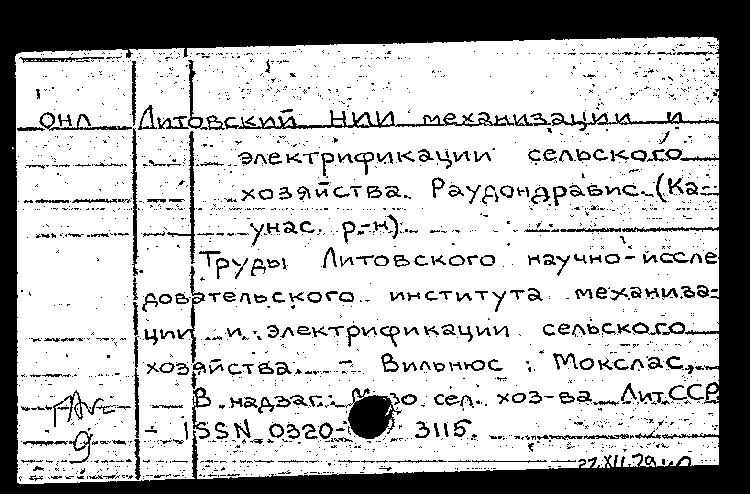 ОНЛ Литовский НИИ механизации и
электрификации сельского
хозяйства. Раудондравис. (Ка-
унас. р-н).
Труды Литовского научно-иссле
довательского института механиза-
ции и электрификации сельского
хозяйства. - Вильнюс : Мокслас,
В надзаг.: сел. хоз-ва ЛитССР
- ISSN 0320- 3115.
9